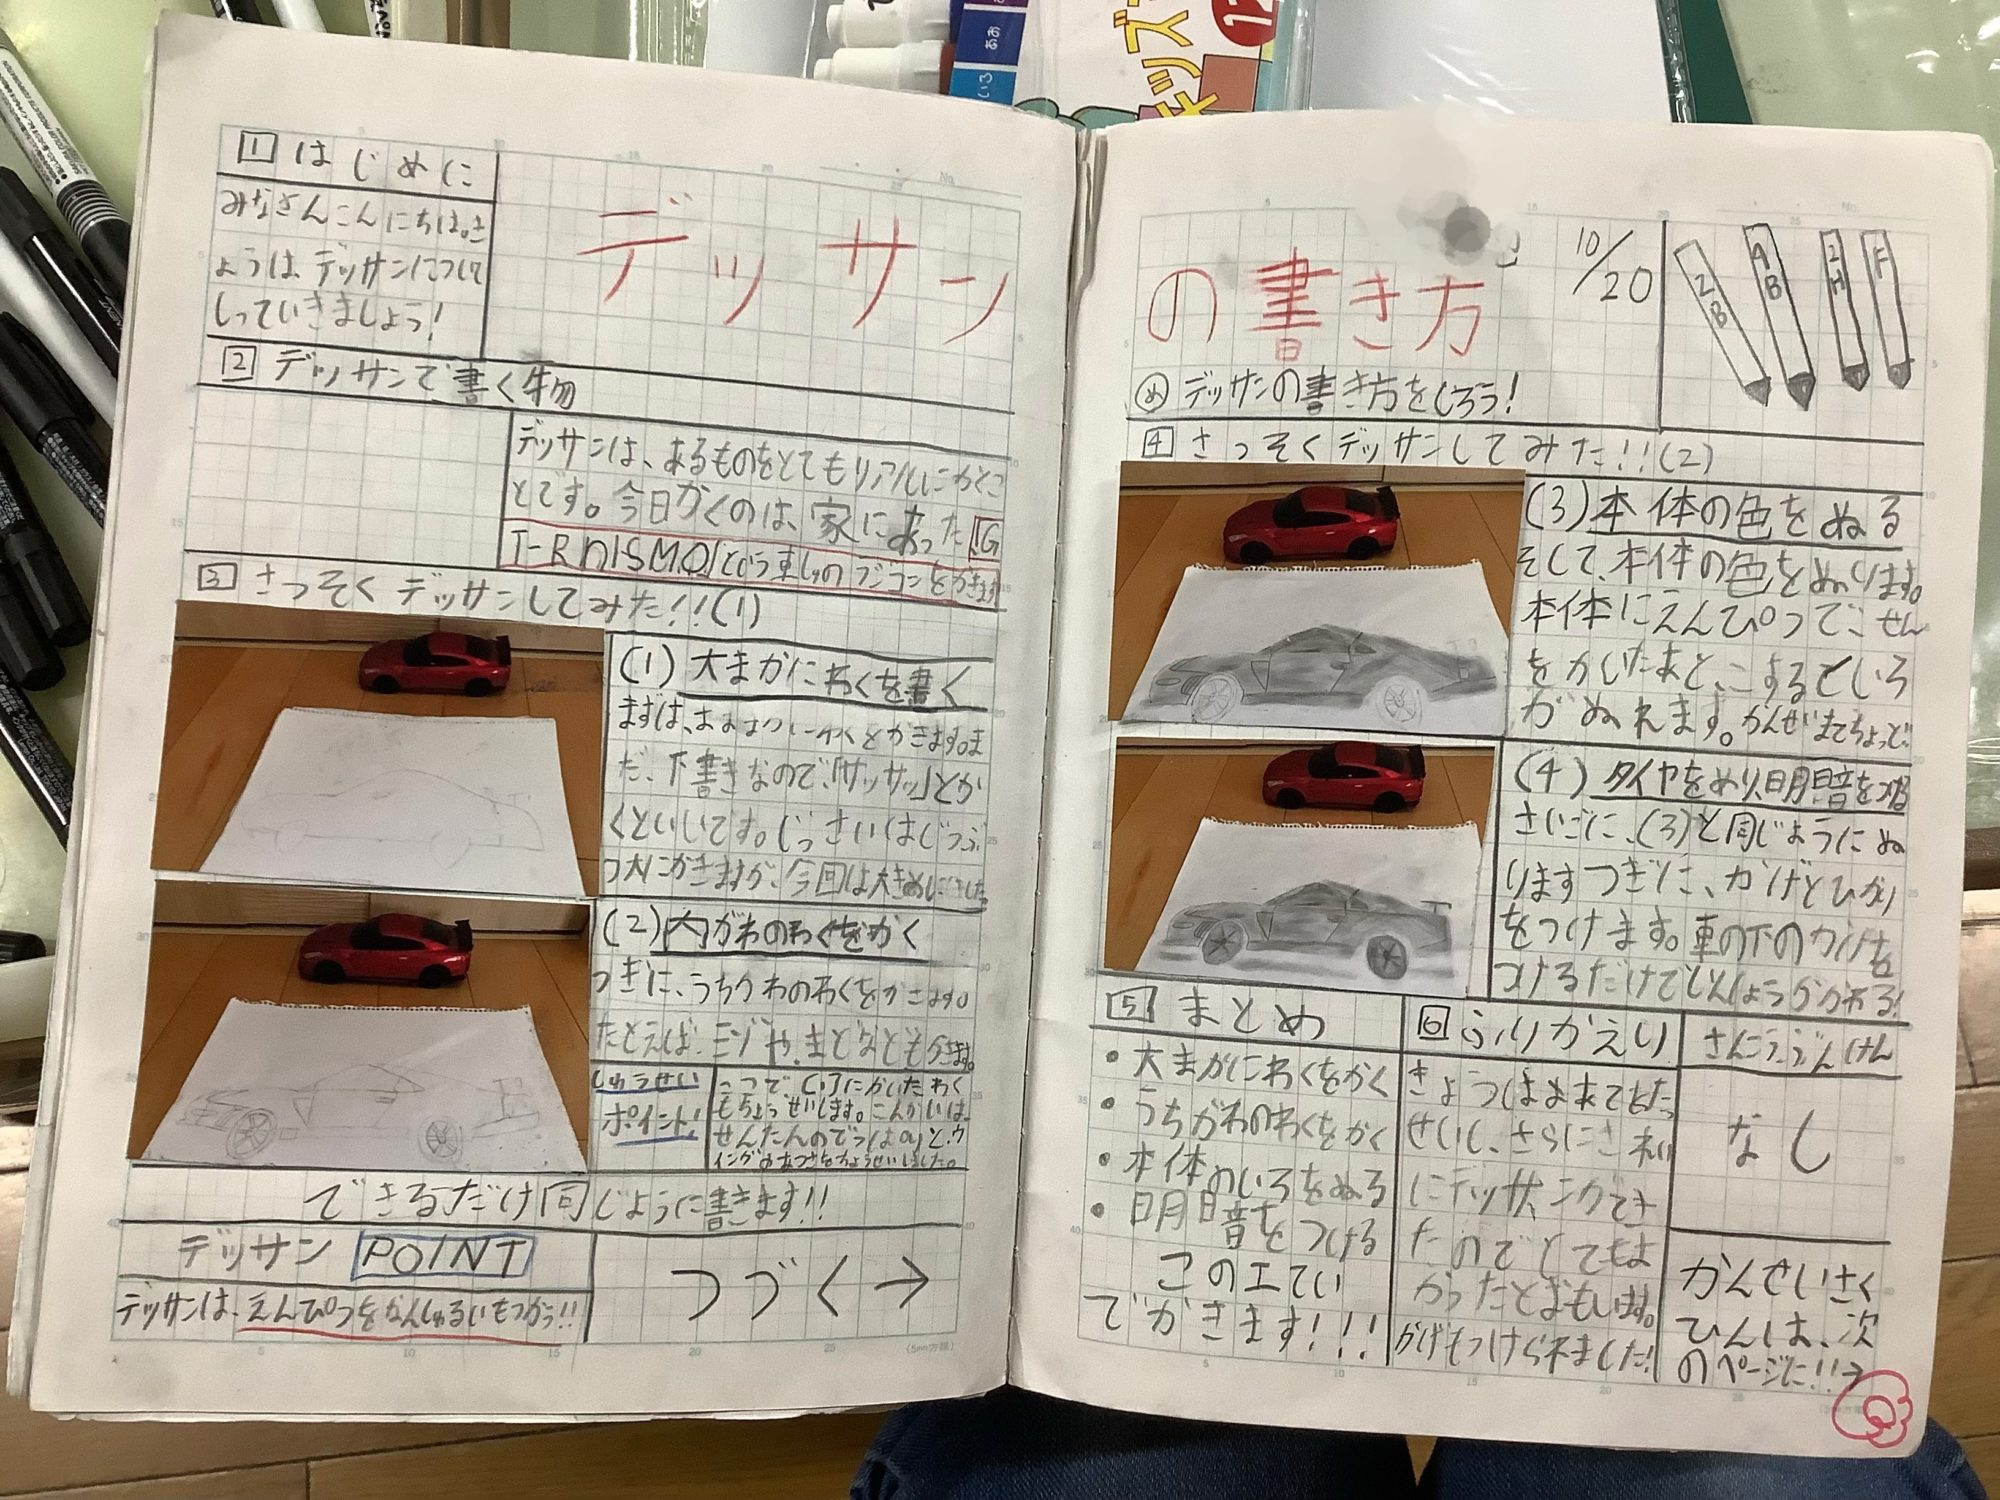 1 はじめに
みなさんこんにちは。き
ょうは、デッサンについて
しっていきましょう!
デッサン
の書き方
10/20
2B
4B
2H
F
め デッサンの書き方をしろう!
2 デッサンで書く物
デッサンは、あるものをとてもリアルにかくこ
とです。今日かくのは、家にあった「G
T-R nISMO」という車しゅのラジコンをかきます
3 さっそくデッサンしてみた!!(1)
(1) 大まかにわくを書く
まずは、おおまかにわくをかきます。ま
だ、下書きなので、「サッサッ」とか
くといいです。じっさいはじつぶ
つ大にかきますが、今回は大きめにしました。
(2) 内がわのわくをかく
つぎに、うちがわのわくをかきます。
たとえば、ミゾや、まどなどもかきます。
しゅうせい
ポイント!
ここで(1)にかいたわく
もちょうせいします。こんかいは、
せんたんの
できるだけ同じように書きます!!
デッサン POINT
デッサンは、えんぴつをなんしゅるいもつかう!!
つづく→
4 さっそくデッサンしてみた!!(2)
(3) 本体の色をぬる
そして、本体の色をぬります。
本体にえんぴつでこせん
をかいたあと、こするといろ
がぬれます。かんぜいまでちょっと!
(4) タイヤをぬり、明暗をつける
さいごに、(3)と同じようにぬ
りますつぎに、かげとひかり
をつけます。車の下のかげを
つけるだけでいんしょうがかわる!
5 まとめ
・大まかにわくをかく
・うちがわのわくをかく
・本体のいろをぬる
・明暗をつける
この工てい
でかきます!!!
6 ふりかえり
きょうは
せいし、さらにきれい
にデッサンができ
たのでとてもよ
かったとおもいます。
かげもつけられました!
さんこうぶんけん
なし
かんせいさく
ひんは、次
のページに!!→
(5mm方眼)
No.
No.
いろ
あお
キッズ
12